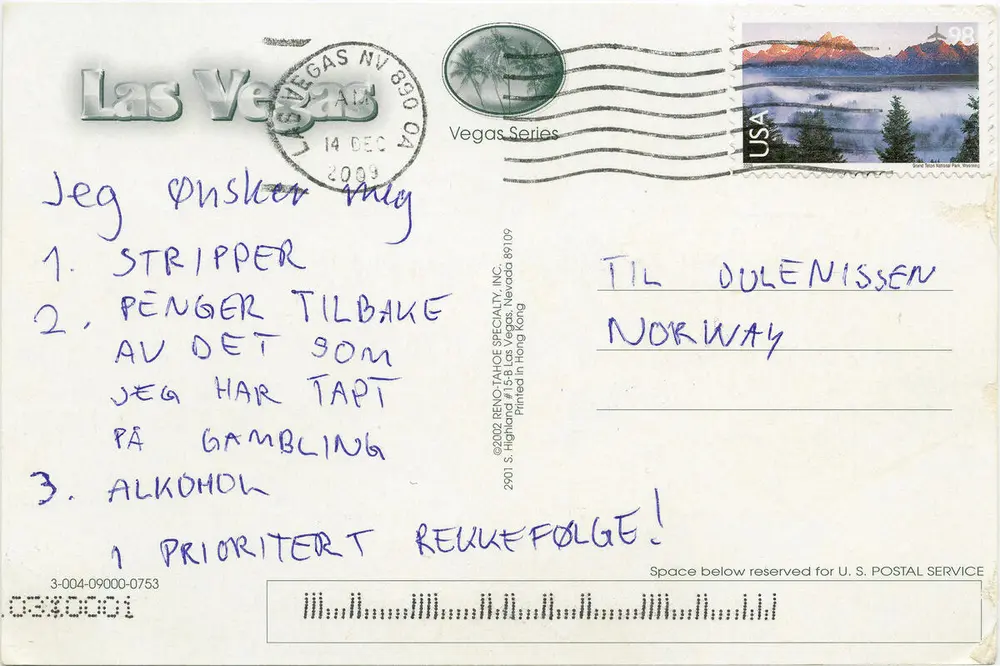 Las Vegas
LAS VEGAS NV 890 OA
AM
14 DEC
2009
Vegas Series
98
USA
Grand Teton National Park, Wyoming
Jeg Ønsker meg
1. STRIPPER
2. PENGER TILBAKE
AV DET SOM
JEG HAR TAPT
PÅ GAMBLING
3. ALKOHOL
I PRIORITERT REKKEFØLGE!
©2002 RENO-TAHOE SPECIALTY, INC.
2901 S. Highland #15-B Las Vegas, Nevada 89109
Printed in Hong Kong
TIL JULENISSEN
NORWAY
Space below reserved for U. S. POSTAL SERVICE
3-004-09000-0753